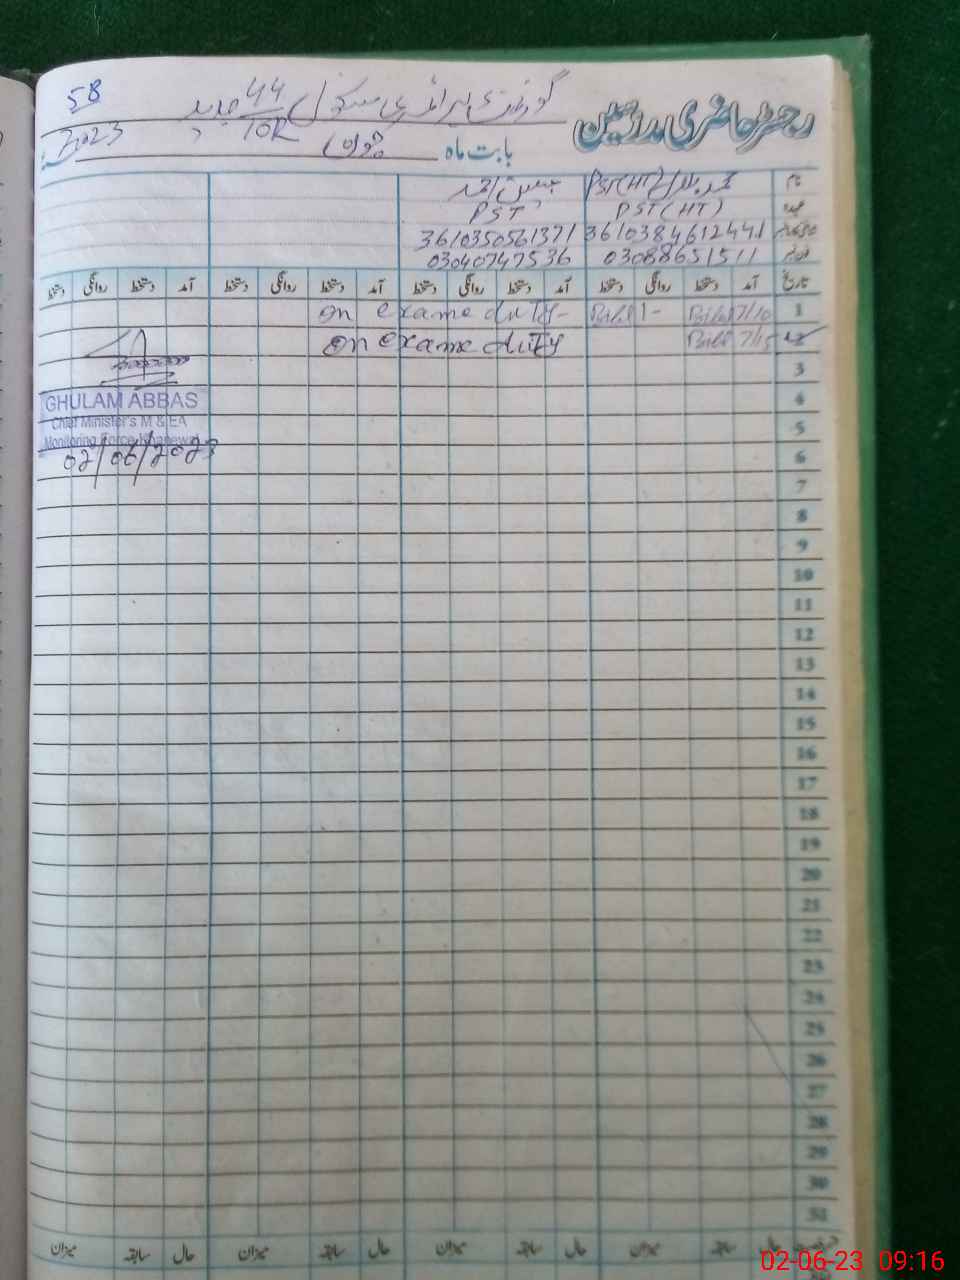 58
گورنمنٹ پرائمری سکول 44/10R جدید
رجسٹر حاضری مدرسین
بابت ماہ جون 2023
نام محمد بلال PST(HT)
احمد
عہدہ PST(HT) PST
3610384612441 3610350561371
03088651511 03040747536
تاریخ آمد دستخط روانگی دستخط آمد دستخط روانگی دستخط آمد دستخط روانگی دستخط آمد دستخط روانگی دستخط
1 Bilal 7/10 Bilal 1- on exame duty-
2 Bilal 7/15 on exame duty
3
4
GHULAM ABBAS
Chief Minister's M & EA
5
Monitoring Force Khanewal
02/06/2023
6
7
8
9
10
11
12
13
14
15
16
17
18
19
20
21
22
23
24
25
26
27
28
29
30
31
حال سابقہ میزان حال سابقہ میزان حال سابقہ میزان حال سابقہ میزان
02-06-23 09:16